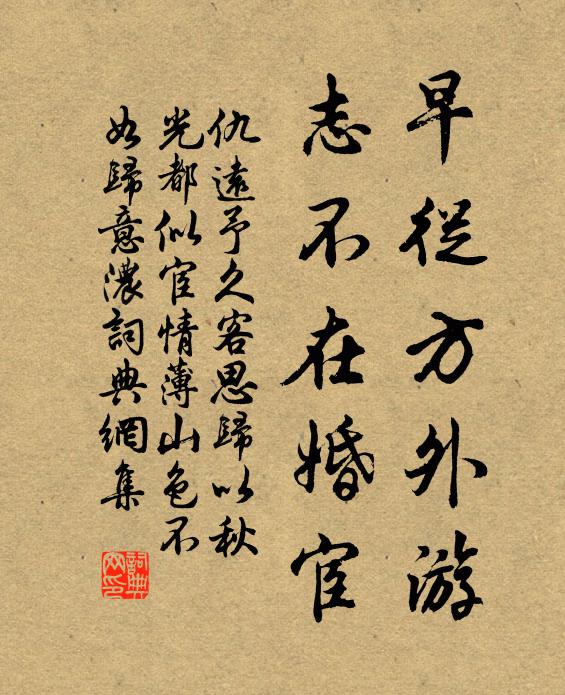 早從方外游
志不在婚宦
仇遠予久客思歸以秋
光都似宦情薄山色不
如歸意濃詞典網集
詞典
网印